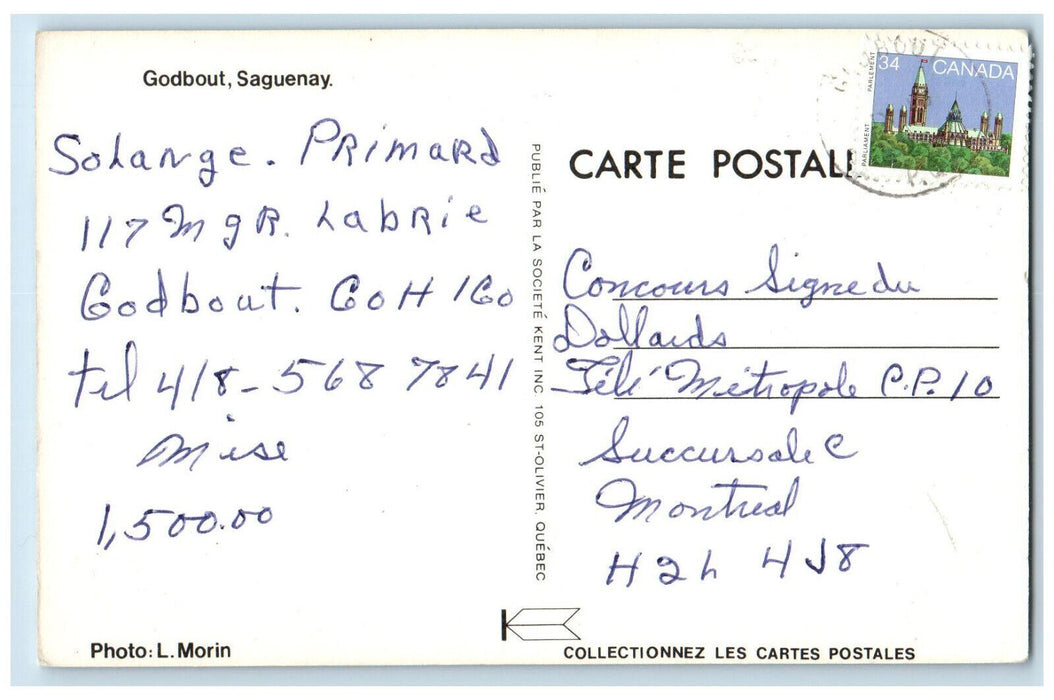 Godbout, Saguenay.
Solange. Primard
117 Mgr. Labrie
Godbout. G0H 1G0
tel 418-568 7841
Mise
1,500.00
Photo: L. Morin
PUBLIÉ PAR LA SOCIETÉ KENT INC. 105 ST-OLIVIER, QUÉBEC
34 CANADA
PARLIAMENT PARLEMENT
CARTE POSTALE
Concours Signe du
Dollards
Télé Métropole C.P. 10
Succursale C
Montreal
H2L 4J8
COLLECTIONNEZ LES CARTES POSTALES